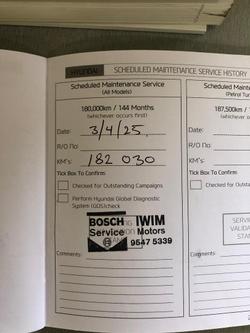 HYUNDAI
SCHEDULED MAINTENANCE SERVICE HISTORY
Scheduled Maintenance Service
(All Models)
180,000km / 144 Months
(whichever occurs first)
Date: 3/4/25.
R/O No:
KM's: 182 030
Tick Box To Confirm
Checked for Outstanding Campaigns
Perform Hyundai Global Diagnostic
System (GDS)check
BOSCH IWIM
Service Motors
9547 5339
Comments:
Schedule
(Petrol Tu
187,500km /
(whic
Date:
R/O No:
KM's:
Tick Box To Confirm
Checked
SERVI
VALIDA
STAN
Comments: